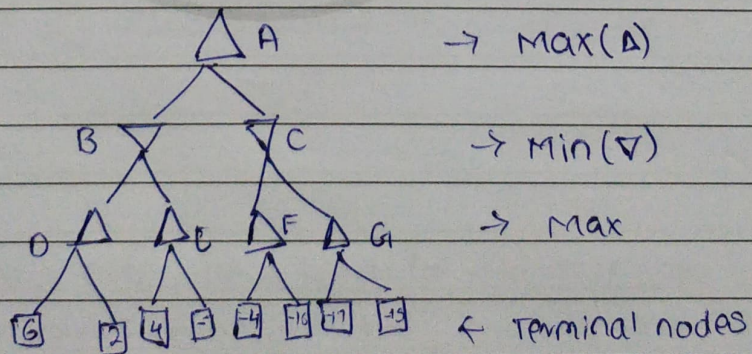 A → Max(Δ)
B C → Min(∇)
D E F G → Max
6 2 4 -4 -10 -17 ← Terminal nodes